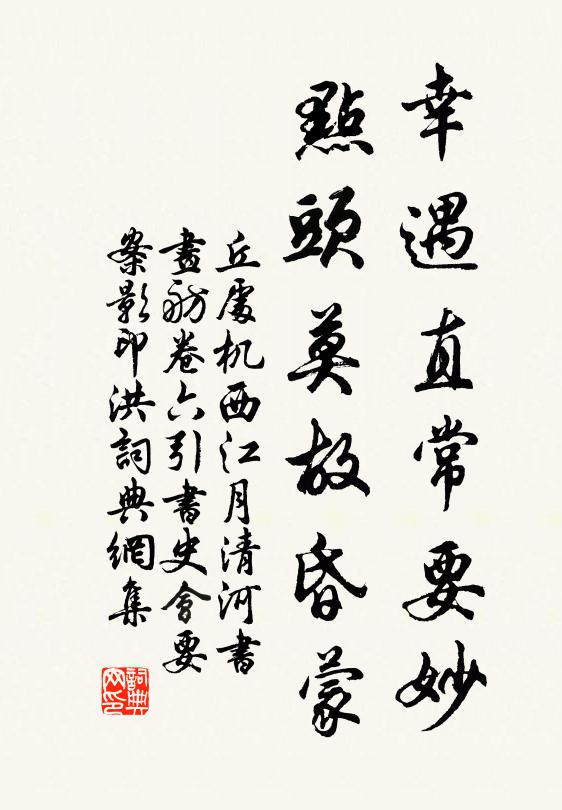 幸遇真常要妙
點頭莫故昏蒙
丘處机西江月清河書
畫舫卷六引書史會要
案影印洪詞典網集
詞典网印